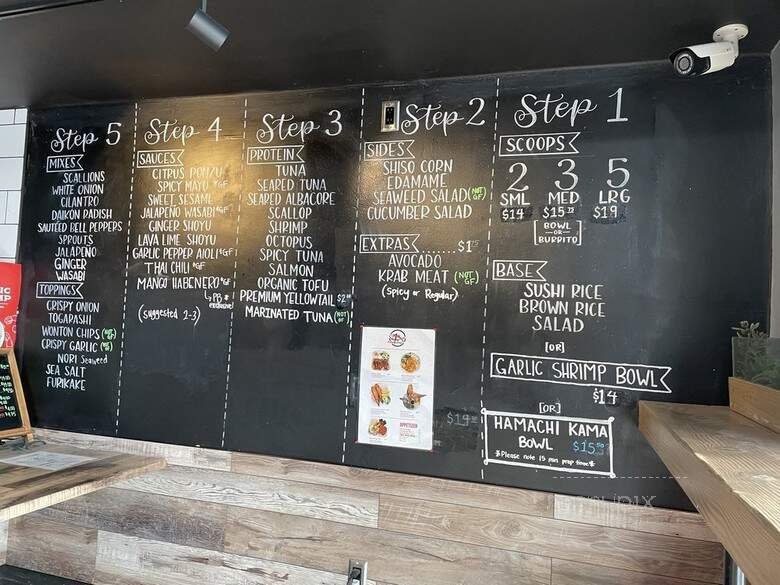 Step 5
MIXES
SCALLIONS
WHITE ONION
CILANTRO
DAIKON RADISH
SAUTÉED BELL PEPPERS
SPROUTS
JALAPEÑO
GINGER
WASABI
TOPPINGS
CRISPY ONION
TOGAPASHI
WONTON CHIPS (NOT GF)
CRISPY GARLIC
NORI Seaweed
SEA SALT
FURIKAKE
Step 4
SAUCES
CITRUS PONZU
SPICY MAYO *GF
SWEET SESAME
JALAPENO WASABI *GF
GINGER SHOYU
LAVA LIME SHOYU
GARLIC PEPPER AIOLI *GF
THAI CHILI *GF
MANGO HABENERO *GF
↳ PB exclusive
(Suggested 2-3)
Step 3
PROTEIN
TUNA
SEARED TUNA
SEARED ALBACORE
SCALLOP
SHRIMP
OCTOPUS
SPICY TUNA
SALMON
ORGANIC TOFU
PREMIUM YELLOWTAIL $2
MARINATED TUNA (NOT GF)
Step 2
SIDES
SHISO CORN
EDAMAME
SEAWEED SALAD (NOT GF)
CUCUMBER SALAD
EXTRAS ....... $1
AVOCADO
KRAB MEAT (NOT GF)
(Spicy or Regular)
Step 1
SCOOPS
2 3 5
SML MED LRG
$14 $15 $19
[BOWL
-OR-
BURRITO]
BASE
SUSHI RICE
BROWN RICE
SALAD
[OR]
GARLIC SHRIMP BOWL
$14
[OR]
HAMACHI KAMA
BOWL $15
*Please note 15 min prep time*